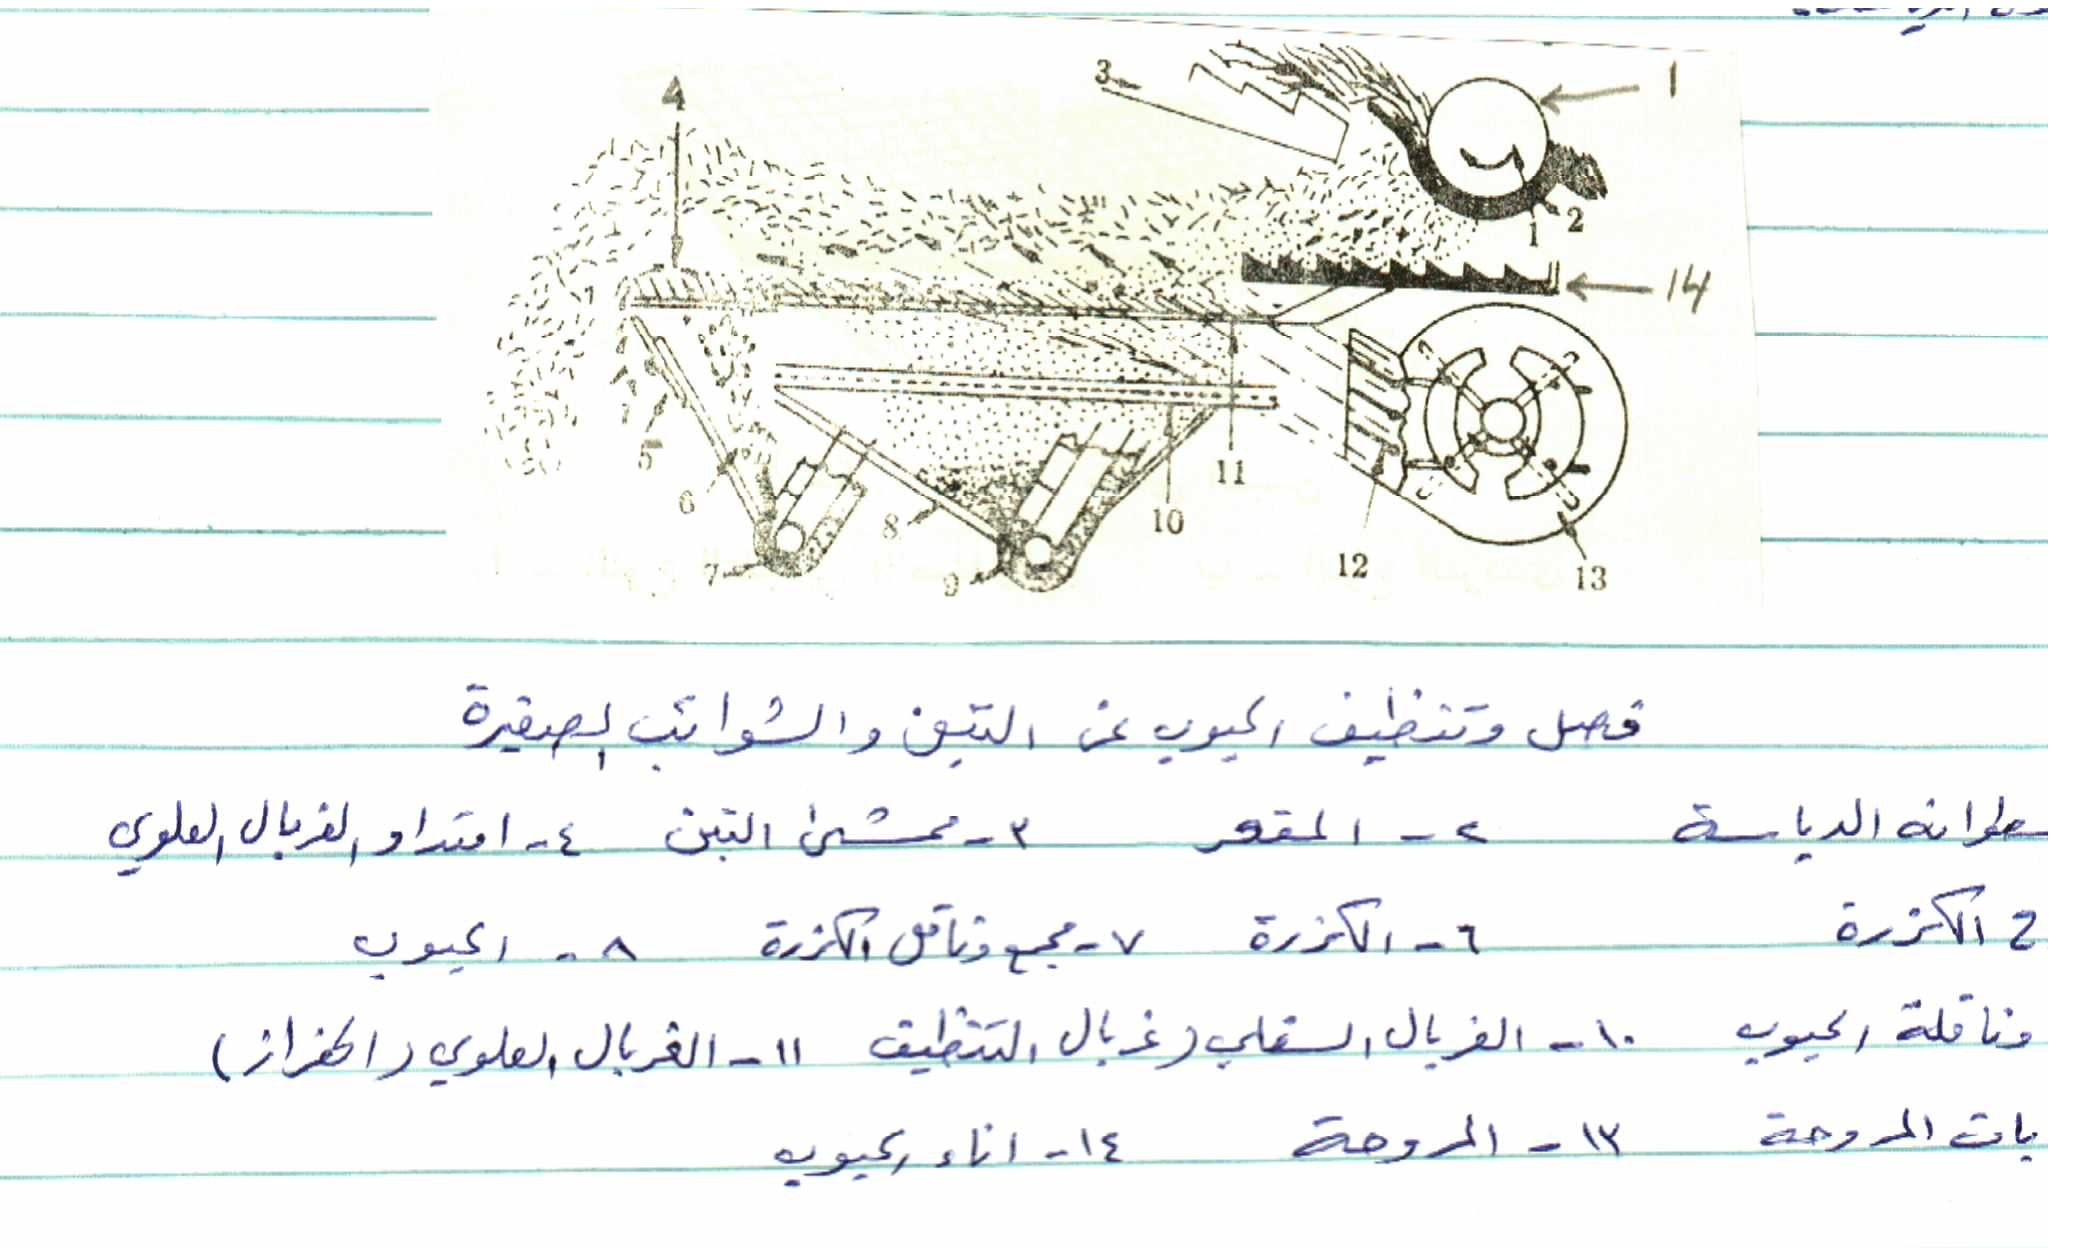 4
3
1
1
2
14
5
6
7
8
9
10
11
12
13
فصل وتنظيف الحبوب عن التبن والشوائب الصغيرة
سطوانة الدياسة ٢ - المقعر ٣ - ممشى التبن ٤ - امتداد الغربال العلوي
الكزرة ٦ - الكزرة ٧ - مجمع وناقل الكزرة ٨ - الحبوب
وناقلة الحبوب ١٠ - الغربال السفلي (غربال التنظيف ١١ - الغربال العلوي (
المروحة ١٣ - المروحة ١٤ - اناء الحبوب